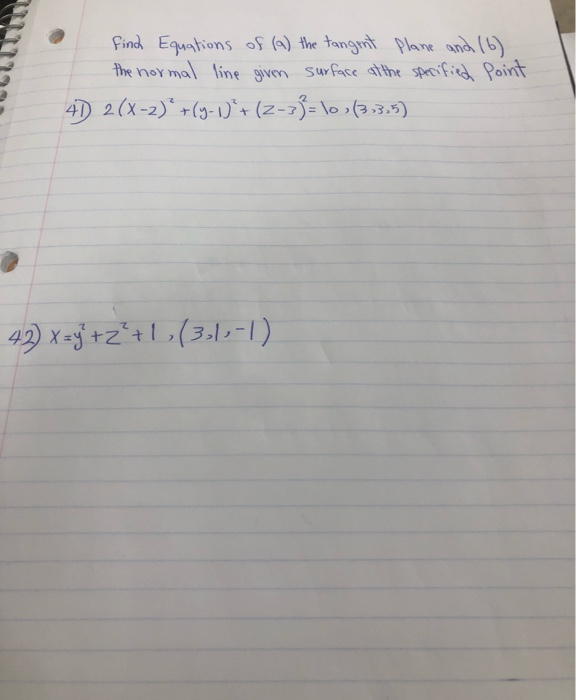 Find Equations of (a) the tangent plane and (b)
the normal line given surface at the specified Point
41) 2(x-2)² + (y-1)² + (z-3)² = 10, (3,3,5)
42) x=y²+z²+1, (3,1,-1)